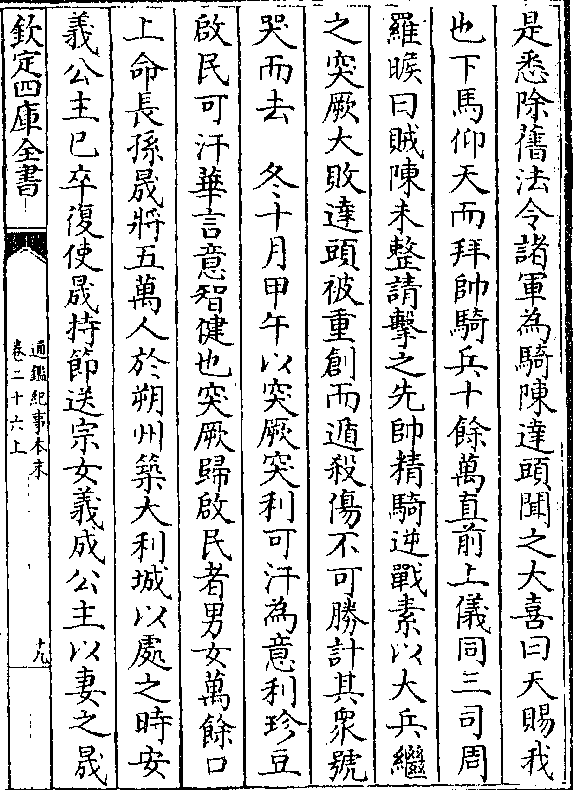 是悉除舊法令諸軍為騎陳達頭聞之大喜曰天賜我
也下馬仰天而拜帥騎兵十餘萬直前上儀同三司周
羅睺曰賊陳未整請擊之先帥精騎逆戰素以大兵繼
之突厥大敗達頭被重創而遁殺傷不可勝計其衆號
哭而去　冬十月甲午以突厥突利可汗為意利珍豆
啟民可汗華言意智健也突厥歸啟民者男女萬餘口
上命長孫晟將五萬人於朔州築大利城以處之時安
義公主已卒復使晟持節送宗女義成公主以妻之晟
欽定四庫全書
通鑑紀事本末
卷二十六上
十九